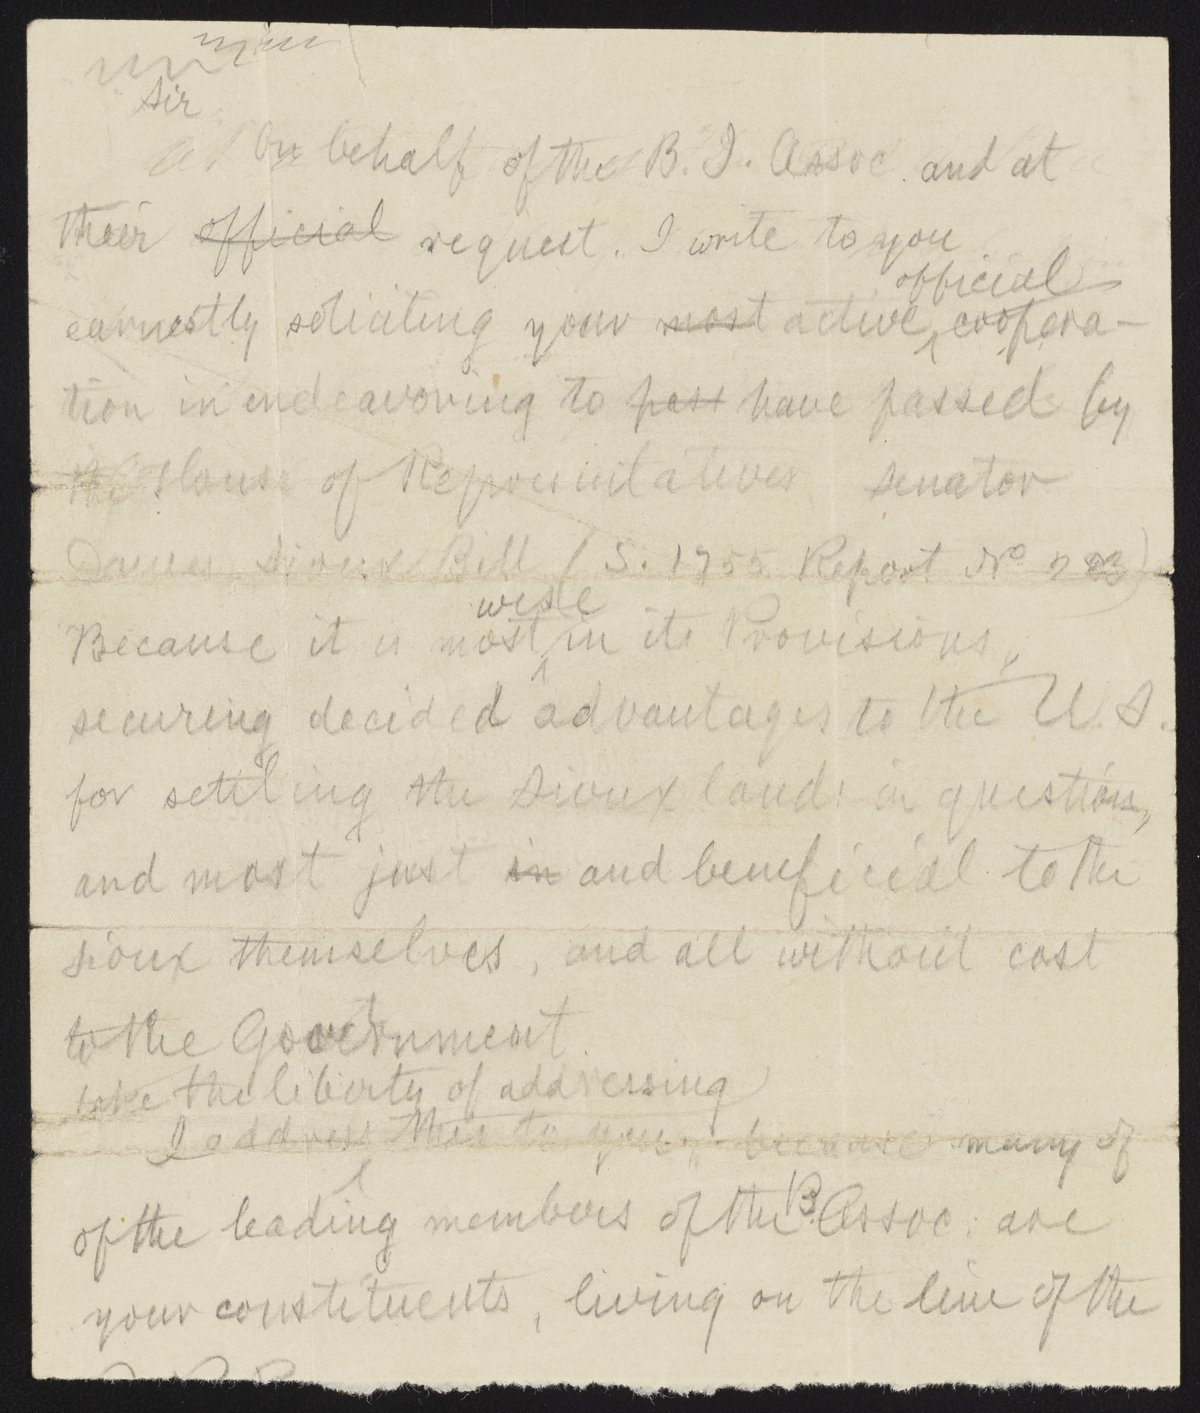 Sir
At On behalf of the B. I. Assoc. and at
their official request. I write to you
official
earnestly soliciting your most active, coopera-
tion in endeavoring to pass have passed by
the House of Representatives Senator
Dawes Sioux Bill (S. 1755 Report No 783)
wise
Because it is most in its Provisions,
securing decided advantages to the U.S.
for settling the Sioux lands in question,
and most just in and beneficial to the
Sioux themselves, and all without cost
to the Government.
take the liberty of addressing
I address this to you, because many of
of the leading members of the B. Assoc. are
your constituents, living on the line of the